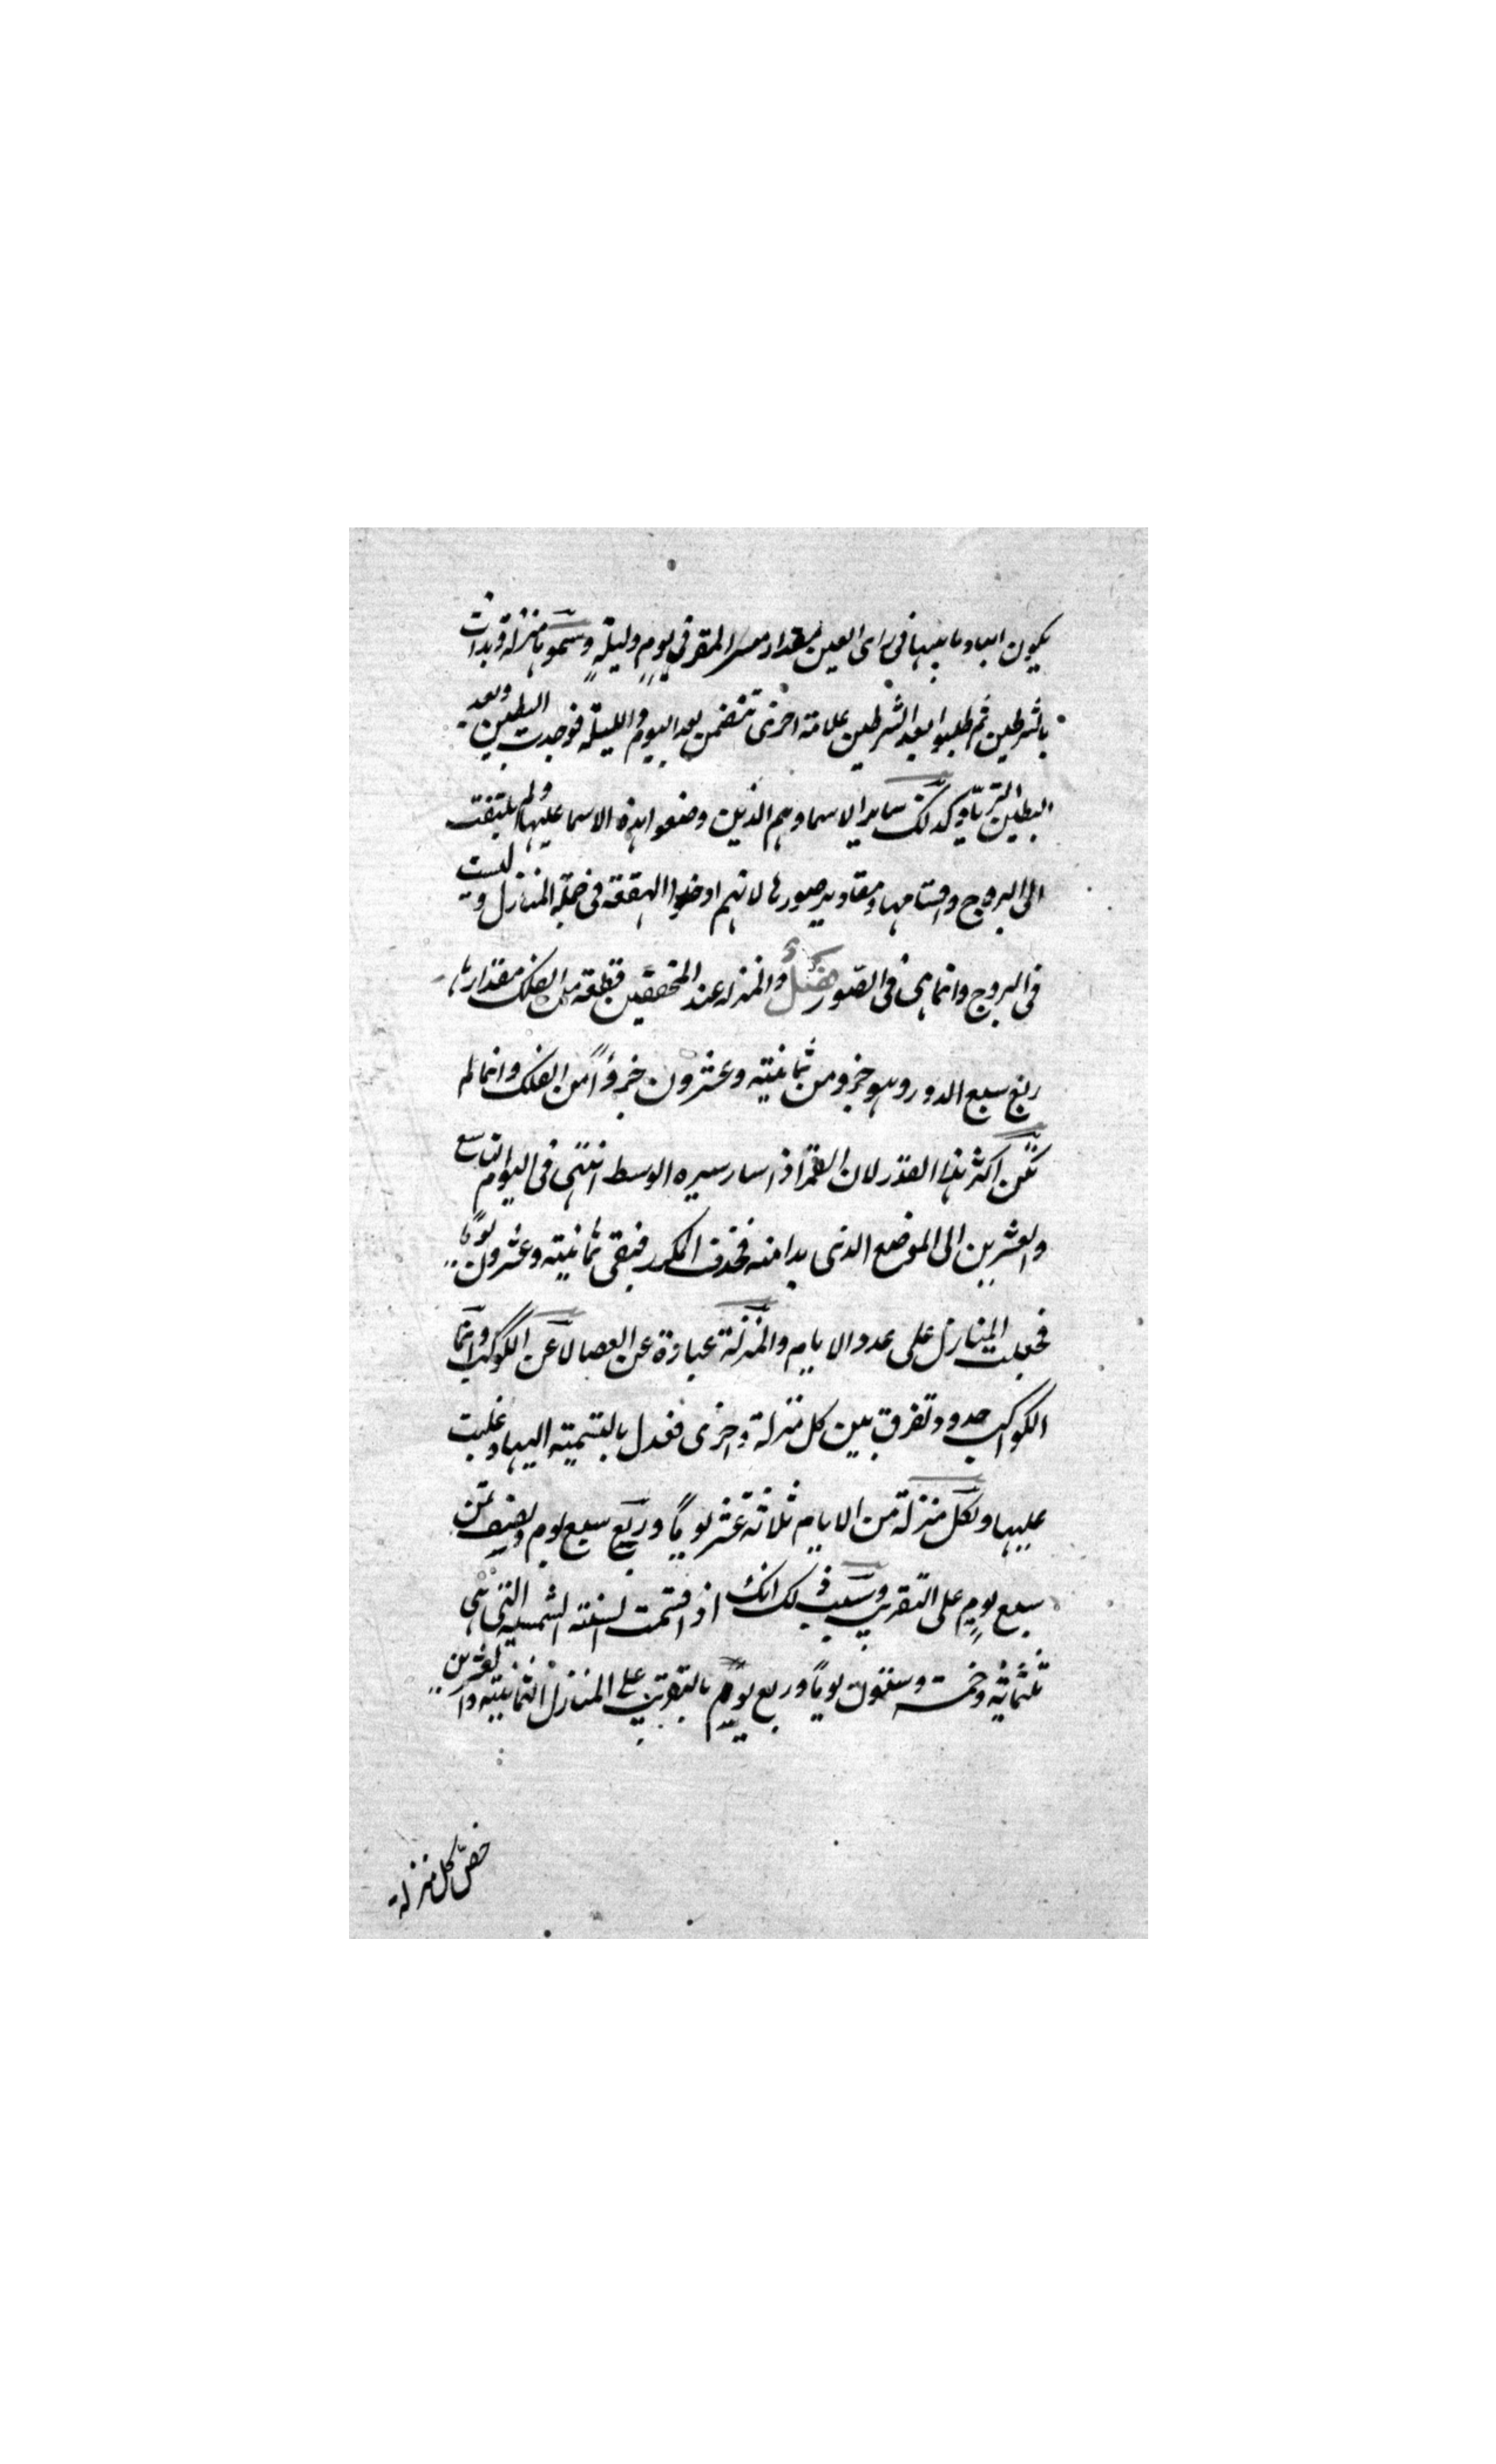 يكون ابعاد ما بينها في راى العين مقدار مسير القمر في يوم وليلة وسموها منزلة وبدات
بالشرطين ثم طلبوا بعد الشرطين علامة اخرى تتضمن بعد اليوم والليلة فوجدت البطين وبعد
البطين الثريا وكذلك ساير الاسما وهم الذين وضعوا هذه الاسما عليها ولم يلتفت
الى البروج واقسامها ومقادير صورها لانهم ادخلوا الهقعة في جملة المنازل وليست
في البروج وانما هي في الصور فصل والمنزله عند المحققين قطعة من الفلك مقدارها
ربع سبع الدور وهو جزو من ثمانية وعشرون جزوًا من الفلك وانما لم
تكن اكثر هذا القدر لان القمر اذا سار سيره الوسط انتهى في اليوم التاسع
والعشرين الى الموضع الذى بدا منه فحذف المكرر فبقى ثمانية وعشرون يومًا
فجعلت المنازل على عدد الايام والمنزلة عبارة عن العصا لا عن الكوكب وانما
الكواكب حدود تفرق بين كل منزلة واخرى فعدل بالتسمية اليها وغلبت
عليها ولكل منزلة من الايام ثلاثة عشر يومًا وربع سبع يوم ونصف ثمن
سبع يوم على التقريب وسبب ذلك انك اذا قسمت السنة الشمسيه التى هى
ثلثمائة وخمسة وستون يومًا وربع يوم بالتقريب على المنازل الثمانية والعشرين
خص كل منزلة